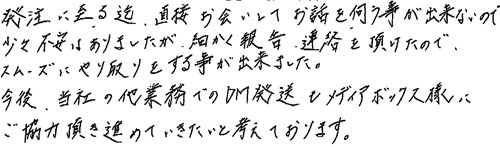 発注に至る迄、直接お会いしてお話を伺う事が出来ないので
少々不安はありましたが、細かく報告、連絡を頂けたので、
スムーズにやり取りをする事が出来ました。
今後、当社の他業務でのDM発送もメディアボックス様に
ご協力頂き進めていきたいと考えております。